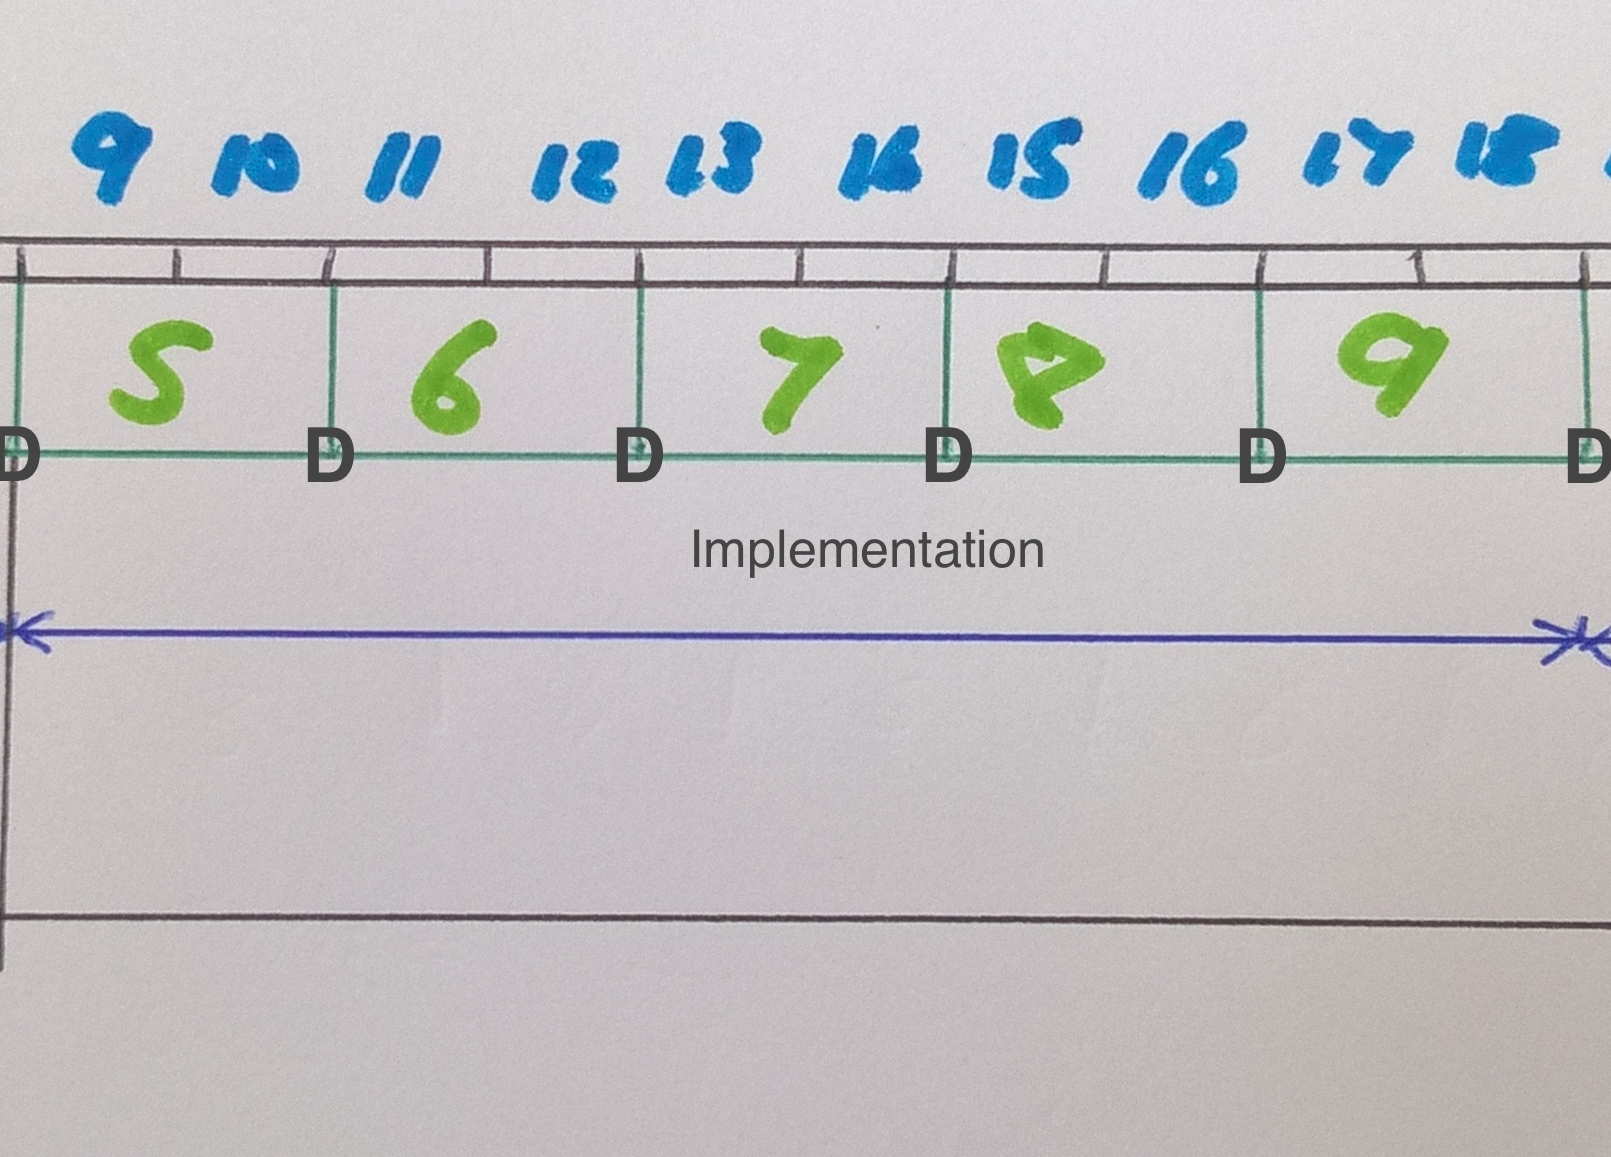 9 10 11 12 13 14 15 16 17 18
5 6 7 8 9
D D D D D D
Implementation